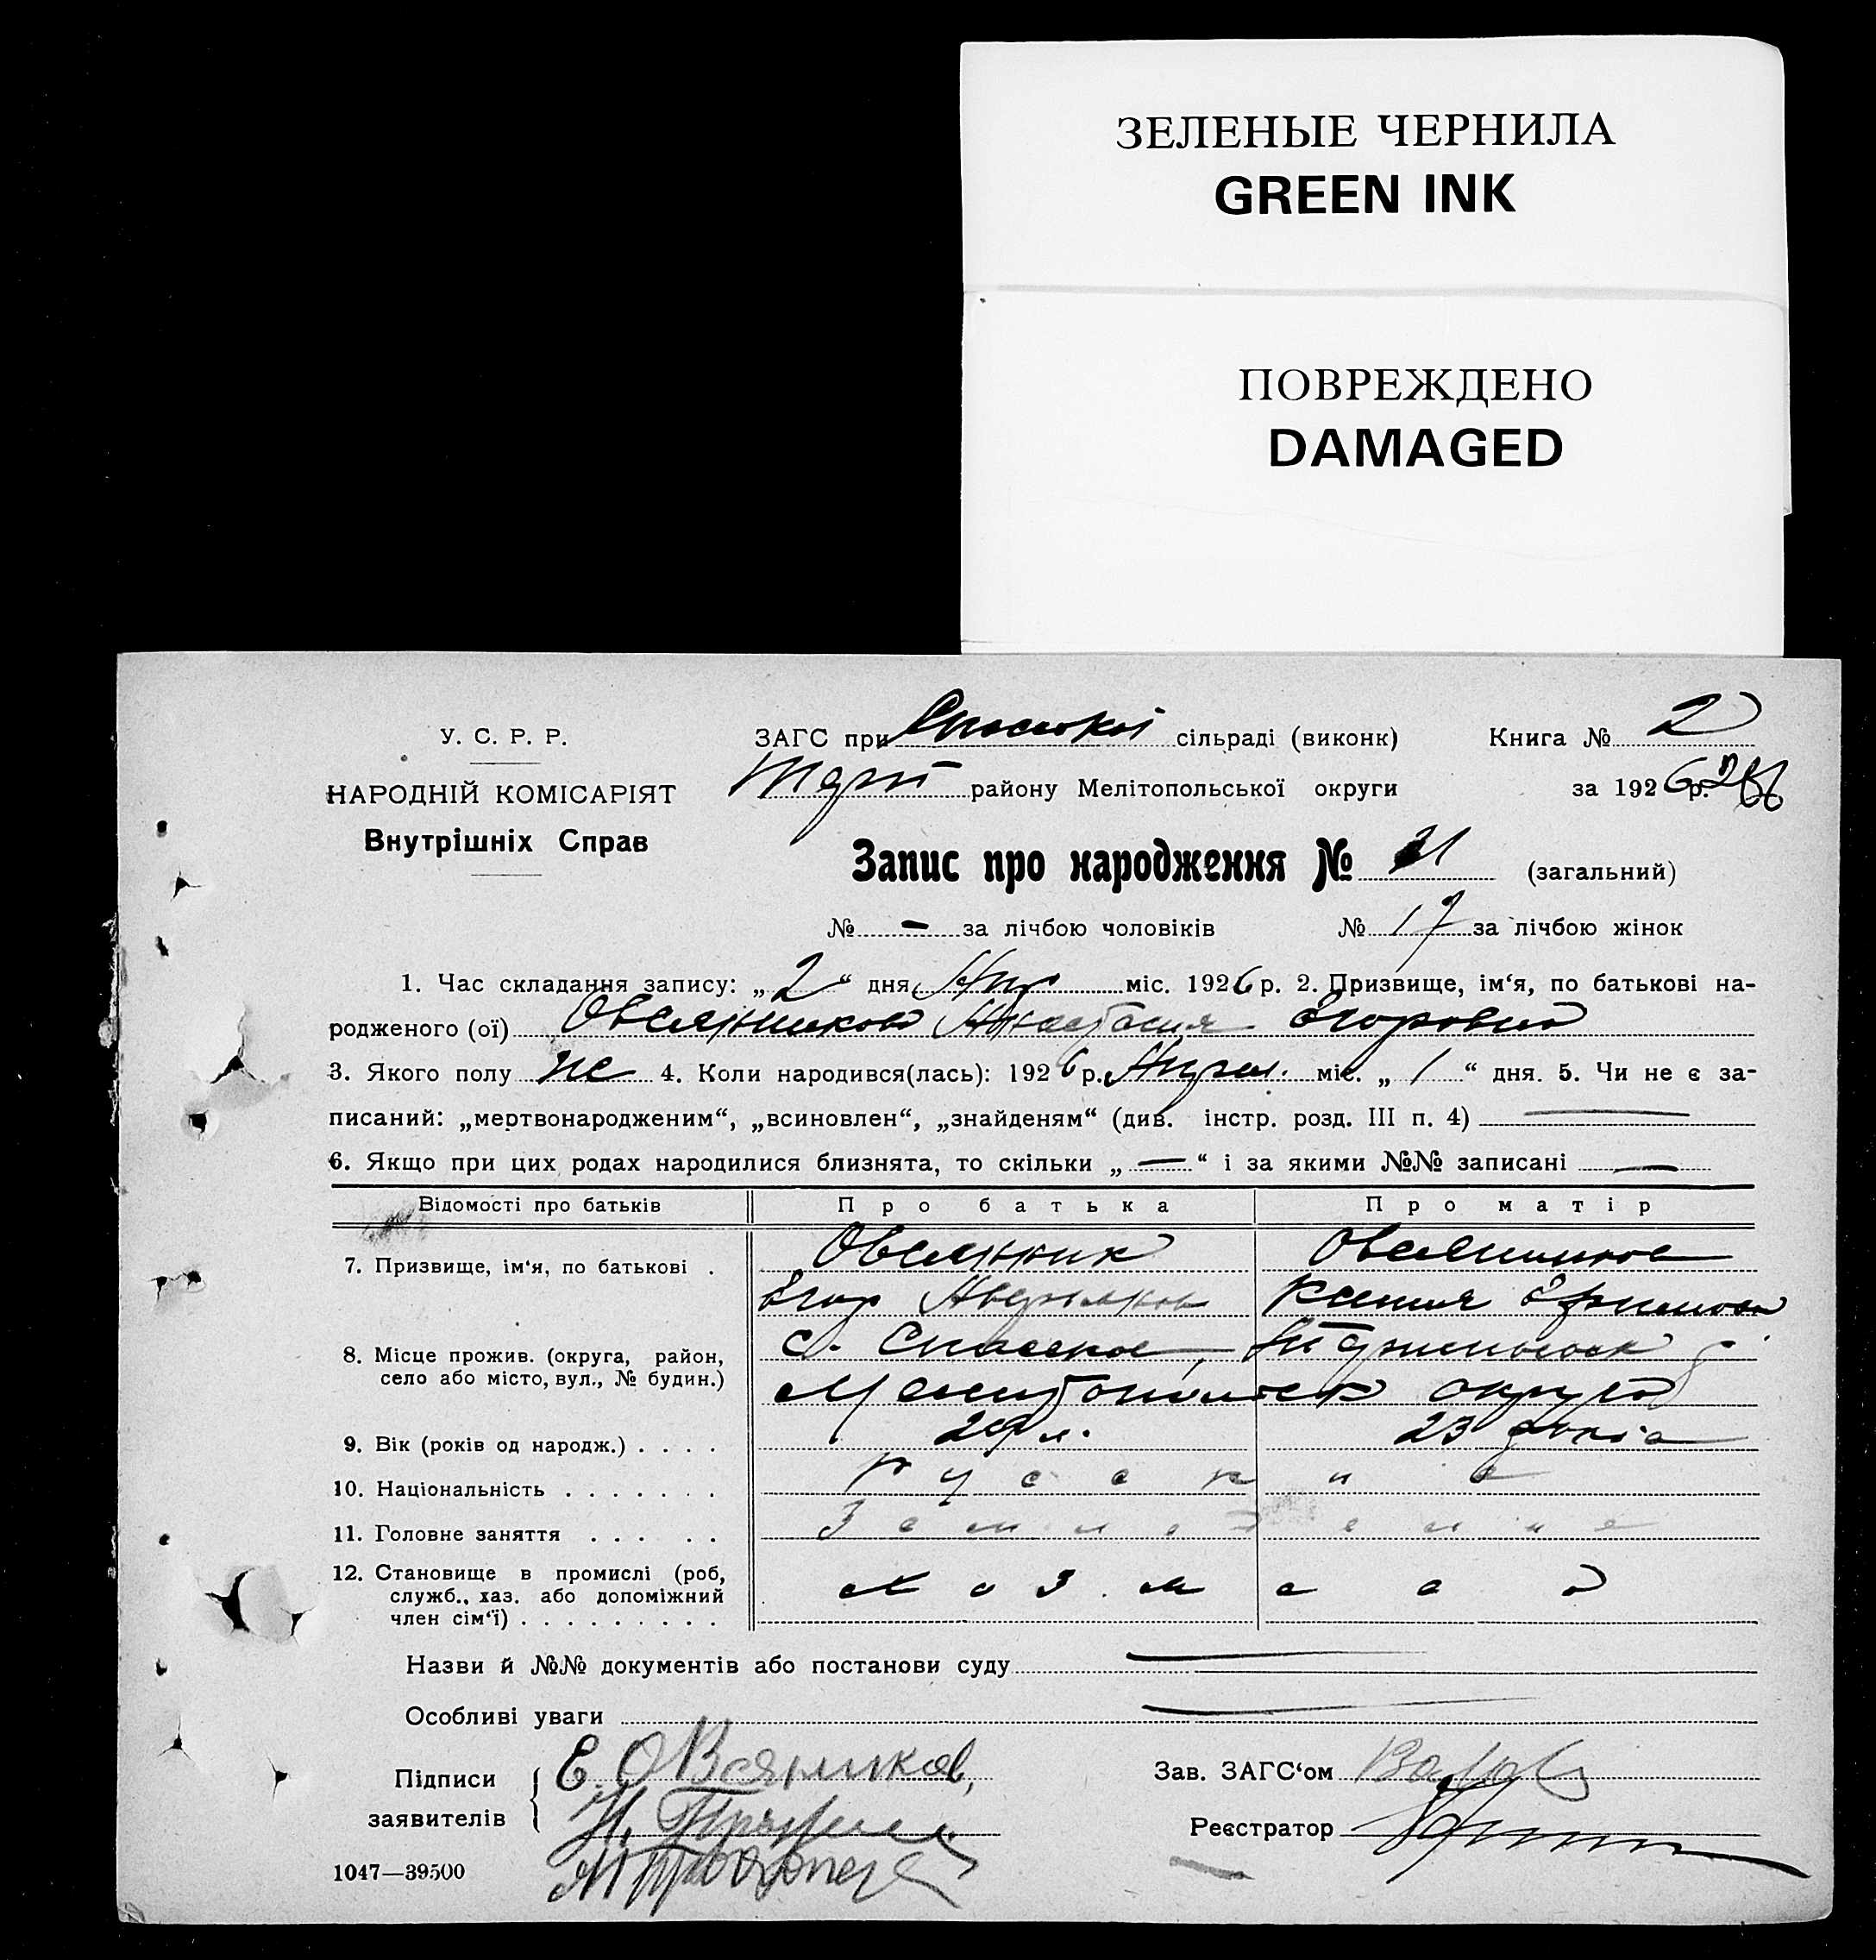 ЗЕЛЕНЫЕ ЧЕРНИЛА
GREEN INK
ПОВРЕЖДЕНО
DAMAGED
У. С. Р. Р.
НАРОДНІЙ КОМІСАРІЯТ
Внутрішніх Справ
ЗАГС при сільраді (виконк) Книга № 2
району Мелітопольської округи за 1926 р.
Запис про народження № (загальний)
№ — за лічбою чоловіків № 17 за лічбою жінок
1. Час складання запису: „ 2 “ дня Апр міс. 1926 р. 2. Призвище, ім‘я, по батькові на-
родженого (ої) Овсянникова Анастасия Егоровна
3. Якого полу же 4. Коли народився(лась): 1926 р. Апрел. міс. „ 1 “ дня. 5. Чи не є за-
писаний: „мертвонародженим“, „всиновлен“, „знайденям“ (див. інстр. розд. III п. 4) —
6. Якщо при цих родах народилися близнята, то скільки „ — “ і за якими №№ записані —
Відомості про батьків Про батька Про матір
7. Призвище, ім‘я, по батькові . Овсянник
Егор Ксения
8. Місце прожив. (округа, район, с. Спаское,
село або місто, вул., № будин.) Мелитопольск округа
9. Вік (років од народж.) . . . . 29 л. 23
10. Національність . . . . . . .
11. Головне заняття . . . . .
12. Становище в промислі (роб,
служб., хаз. або допоміжний
член сім‘ї) . . . . . . . . .
Назви й №№ документів або постанови суду —
Особливі уваги —
Підписи Е. Овсяников, Зав. ЗАГС‘ом
заявителів Реєстратор
1047—39500